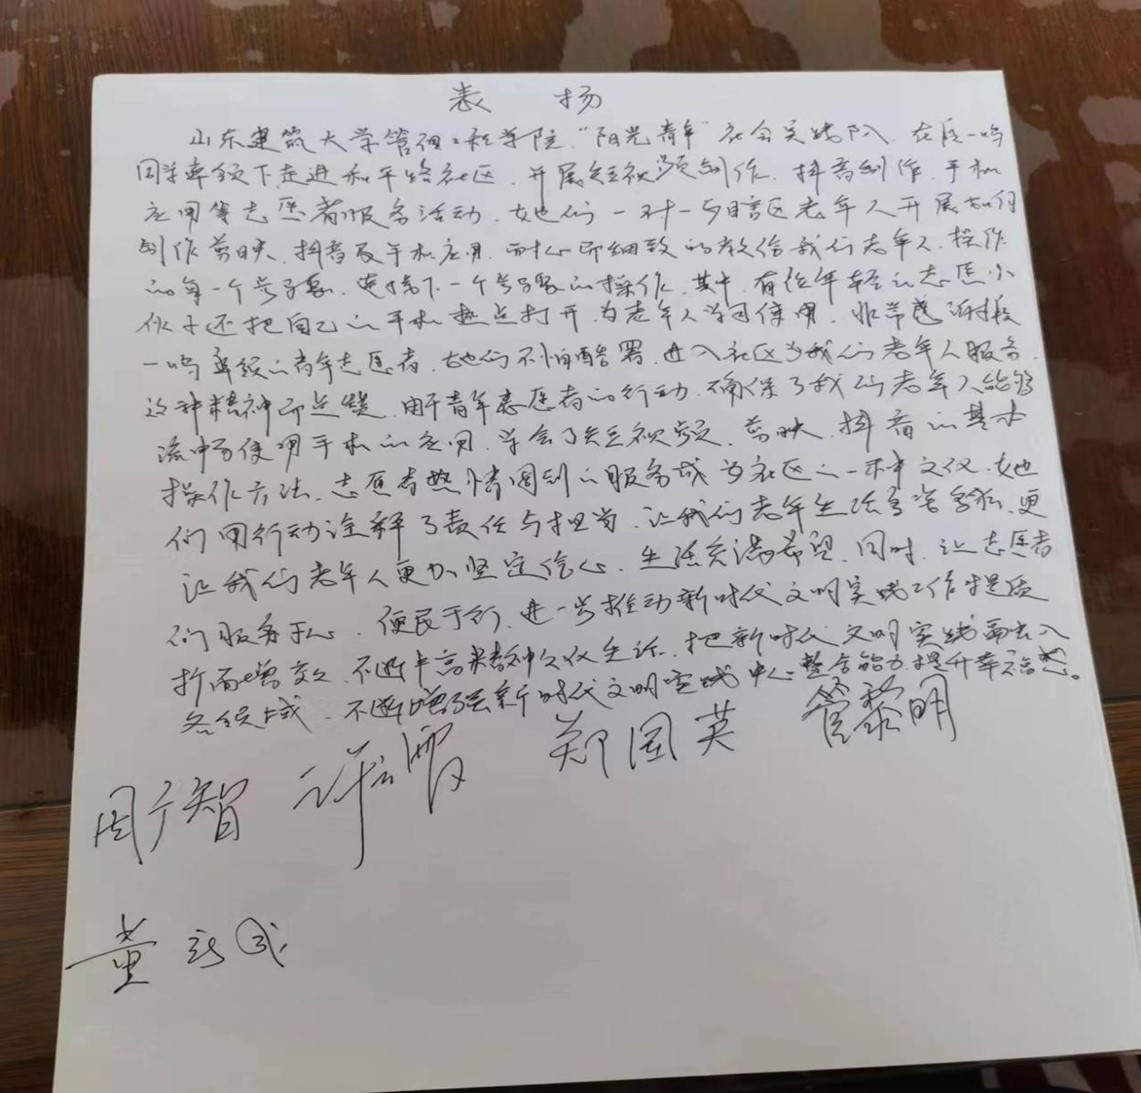 表 扬
山东建筑大学管理工程学院"阳光青年"社会实践队,在段一鸣
同学率领下走进和平路社区,开展短视频制作,抖音制作,手机
应用等志愿者服务活动,她们一对一与辖区老年人开展如何
制作剪映、抖音及手机应用,耐心而细致的教给我们老年人,操作
的每一个步骤,连接下一个步骤的操作,其中,有位年轻的志愿小
伙子还把自己的手机热点打开,为老年人学习使用,非常感谢段
一鸣率领的青年志愿者,她们不怕酷暑,进入社区为我们老年人服务,
这种精神而点赞,由于青年志愿者的行动,确保了我们老年人能够
流畅使用手机的应用,学会了短视频、剪映、抖音的基本
操作方法,志愿者热情周到的服务成为社区的一种文化,她
们用行动诠释了责任与担当,让我们老年生活多姿多彩,更
让我们老年人更加坚定信心,生活充满希望,同时,让志愿者
们服务于心,便民于行,进一步推动新时代文明实践工作提质
增效,不断丰高精神文化生活,把新时代文明实践融入
各领域,不断增强新时代文明实践中心整合能力,提升幸福感。
周广智 许霞 郑国英 管黎明
董